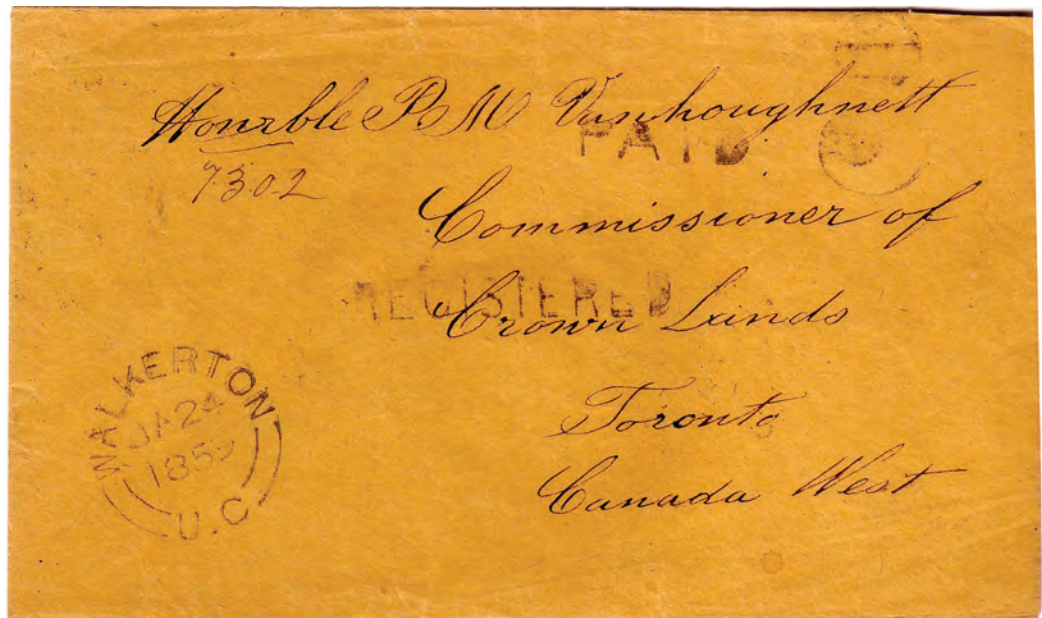 Honrble P M Vanhoughnett
PAID
7302
Commissioner of
REGISTERED
Crown Lands
Toronto
Canada West
WALKERTON
JA 24
1859
U.C